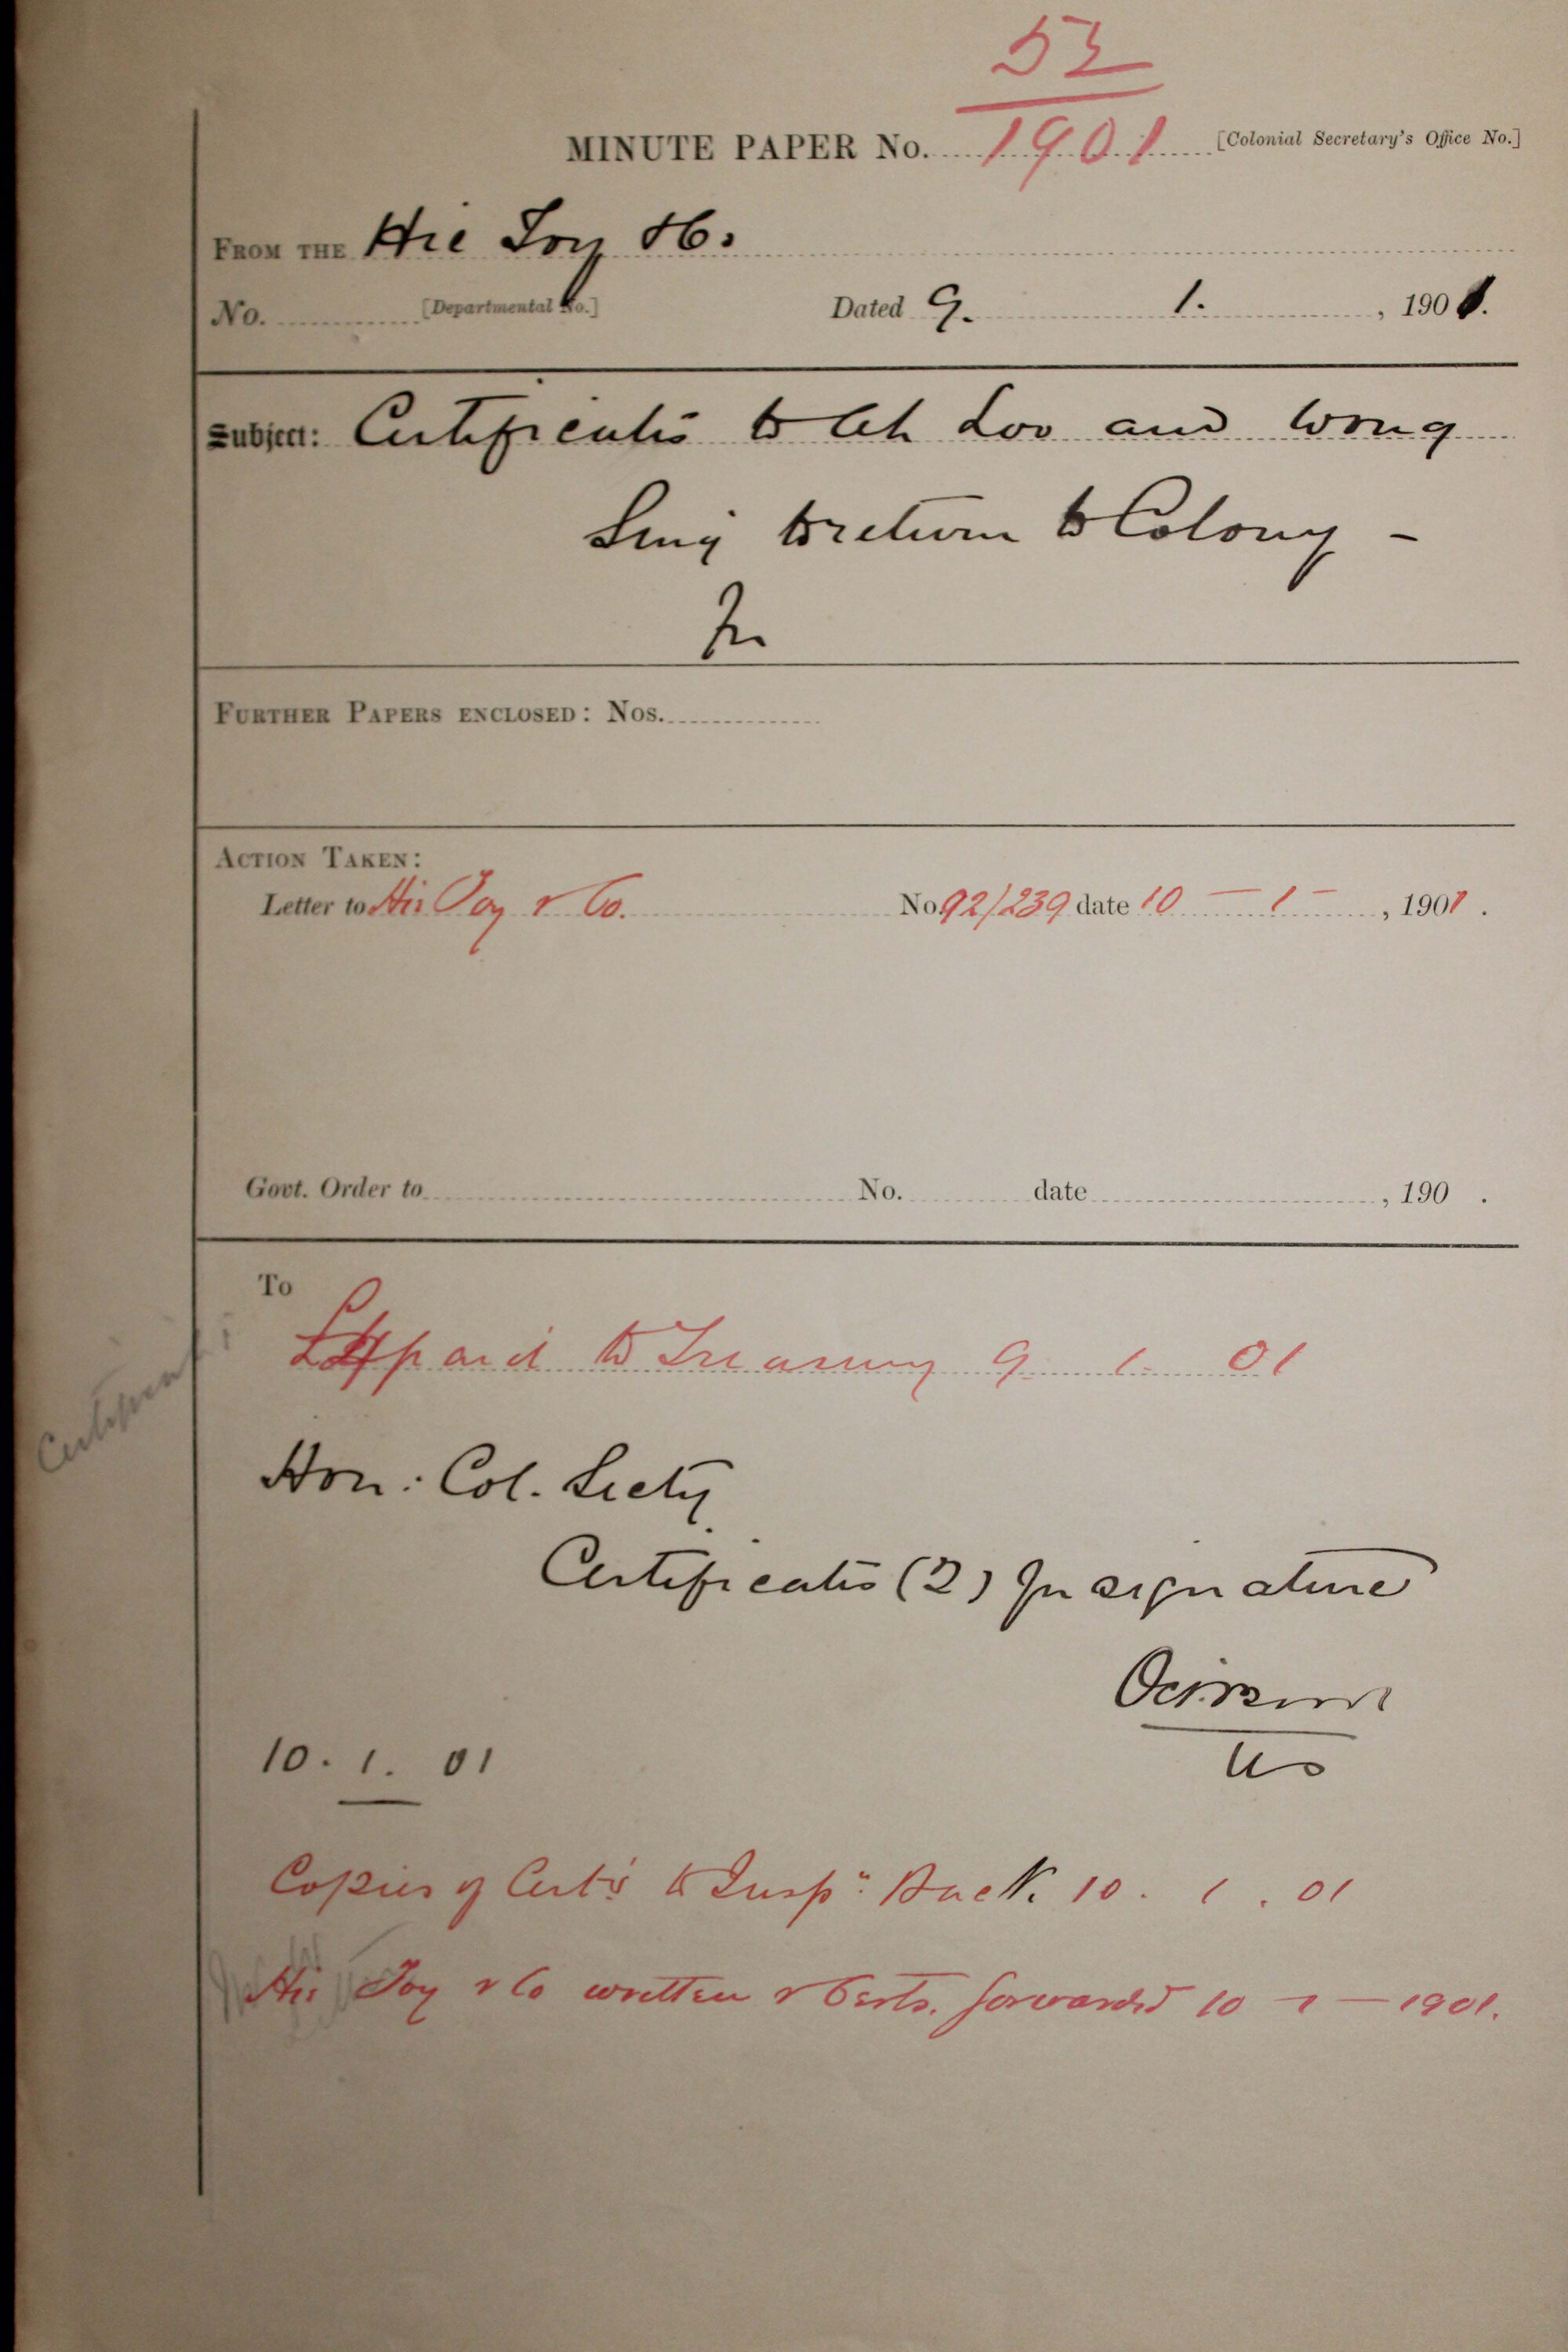 52
MINUTE PAPER No. 1901 [Colonial Secretary's Office No.]
FROM THE Hie Joy & Co.
No. [Departmental No.] Dated 9. 1. , 1901.
Subject: Certificates to Ah Loo and Wong
Sing to return to Colony -
For
FURTHER PAPERS ENCLOSED: Nos.
ACTION TAKEN:
Letter to Hie Joy & Co. No. 92/239 date 10 - 1 - , 1901 .
Govt. Order to No. date , 190 .
To
paid to Treasury 9 1 01
Certificates
Hon: Col. Secty
Certificates (2) for signature
US
10. 1. 01
Copies of Certs to Insp: Back. 10. 1. 01
Hie Joy & Co written & Certs. forwarded 10 - 1 - 1901.